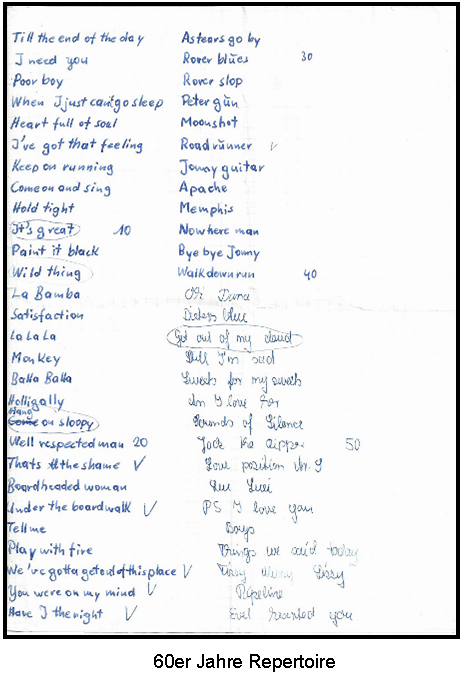 Till the end of the day
I need you
Poor boy
When I just can't go sleep
Heart full of soul
I've got that feeling
Keep on running
Come on and sing
Hold tight
It's great 10
Paint it black
Wild thing
La Bamba
Satisfaction
La La La
Monkey
Balla Balla
Holligally
Hang
Come on sloopy
Well respected man 20
Thats the shame ✓
Boardheaded woman
Under the boardwalk ✓
Tell me
Play with fire
We've gotta get out of this place ✓
You were on my mind ✓
Have I the right ✓
As tears go by
Rover blües 30
Rover slop
Peter gün
Moonshot
Roadrünner ✓
Jonny guitar
Apache
Memphis
Nowhere man
Bye bye Jonny
Walk down run 40
Get out of my cloud
Still I'm sad
Sweets for my sweets
I love her
Sounds of Silence
Jack the ripper 50
Love position Nr. 9
Lui Lui
PS I love you
Boys
Things we said today
Dizzy Missy Lizzy
Pipeline
you
60er Jahre Repertoire